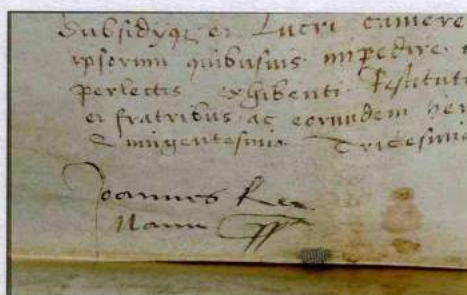 Subsidyq3 et Lucri camere
ipsorum quibusuis impedire
perlectis exhibenti Restitut
et fratribus ac eorundem her
Quingentesimo Tricesimo
Joannes Rex
Manu